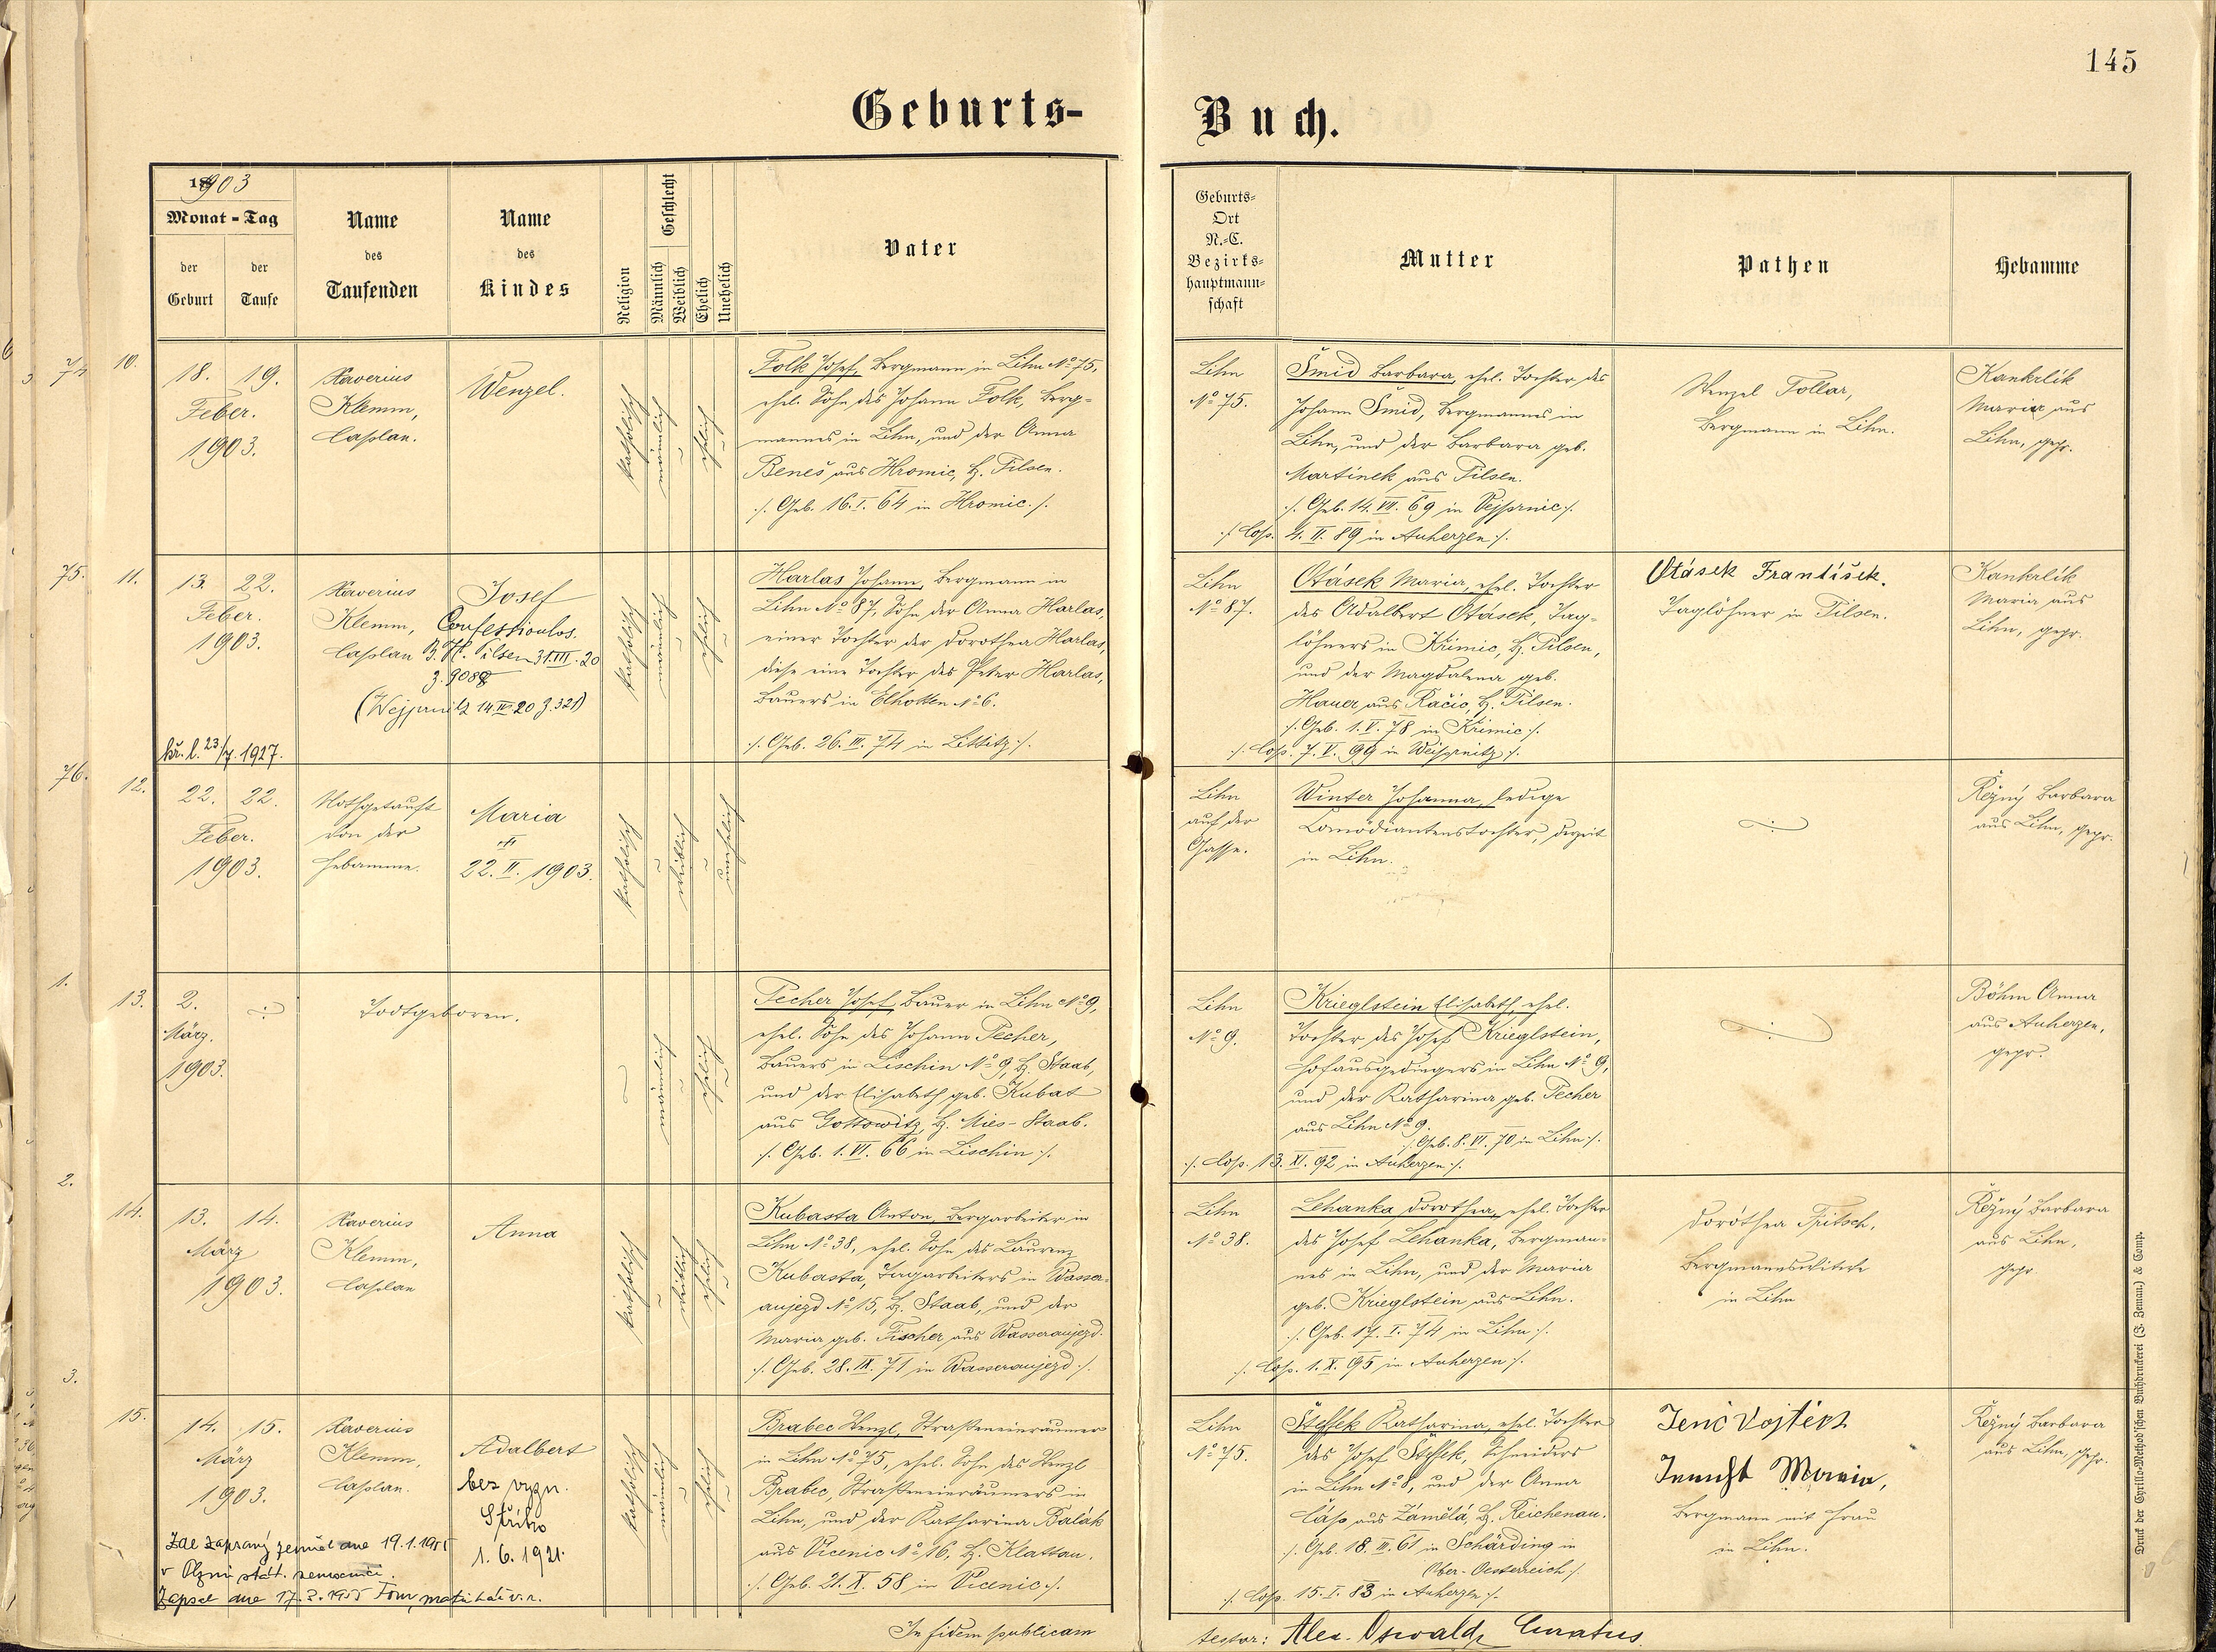 145
Geburts-
Buch.
1903
Monat - Tag
der Geburt
der Taufe
Name
des
Taufenden
Name
des
Kindes
Religion
Geschlecht
Männlich
Weiblich
Ehelich
Unehelich
Vater
Geburts-
Ort
N.-C.
Bezirks-
hauptmann-
schaft
Mutter
Pathen
Hebamme
74 10.
18. 19.
Feber.
1903.
Xaverius
Klemm,
Caplan.
Wenzel.
katholisch
männlich
ehelich
Folk Josef, Bergmann in Lihn No 75,
ehel. Sohn des Johann Folk, Berg-
mannes in Lihn, und der Anna
Beneš aus Hromic, B. Pilsen.
/. Geb. 16. I. 64 in Hromic./.
Lihn
No 75.
Šmid Barbara, ehel. Tochter des
Johann Šmid, Bergmannes in
Lihn, und der Barbara geb.
Martinek aus Pilsen.
/. Geb. 14. VII. 69 in Vejprnic/.
/. Cop. 4. II. 89 in Auherzen/.
Wenzel Tollar,
Bergmann in Lihn.
Kankrlik
Maria aus
Lihn, gepr.
75. 11.
13. 22.
Feber.
1903.
Xaverius
Klemm,
Caplan
Josef
Confessionslos.
B. H. Pilsen 31. III. 20
z. 9088
(Wejprnitz 14. III. 20 z. 321)
23/7. 1927.
katholisch
männlich
ehelich
Harlas Johann, Bergmann in
Lihn No 87, Sohn der Anna Harlas,
einer Tochter der Dorothea Harlas,
diese eine Tochter des Peter Harlas,
Bauers in Elhotten No 6.
/. Geb. 26. III. 74 in Littitz/.
Lihn
No 87.
Otásek Maria, ehel. Tochter
des Adalbert Otásek, Tag-
löhners in Křimic, B. Pilsen,
und der Magdalena geb.
Hauer aus Račic, B. Pilsen.
/. Geb. 1. V. 78 in Křimic/.
/. Cop. 7. V. 99 in Weiprnitz/.
Otásek František.
Taglöhner in Pilsen.
Kankrlik
Maria aus
Lihn, gepr.
76. 12.
22. 22.
Feber.
1903.
Nothgetauft
von der
Hebamme.
Maria
✝
22. II. 1903.
katholisch
weiblich
unehelich
Lihn
auf der
Gasse.
Winter Johanna, ledige
Comödiantenstochter, derzeit
in Lihn.
Řežný Barbara
aus Lihn, gepr.
1. 13.
2.
März.
1903.
Todtgeboren.
männlich
ehelich
Pecher Josef, Bauer in Lihn No 9,
ehel. Sohn des Johann Pecher,
Bauers in Lischin No 9, B. Staab,
und der Elisabeth geb. Kubat
aus Gottowitz, B. Mies-Staab.
/. Geb. 1. VI. 66 in Lischin/.
Lihn
No 9.
Krieglstein Elisabeth, ehel.
Tochter des Josef Krieglstein,
Hofausgedingers in Lihn No 9,
und der Katharina geb. Pecher
aus Lihn No 9.
/. Geb. 8. VI. 70 in Lihn/.
/. Cop. 13. XI. 92 in Auherzen/.
Böhm Anna
aus Auherzen,
gepr.
2. 14.
13. 14.
März
1903.
Xaverius
Klemm,
Caplan
Anna
katholisch
weiblich
ehelich
Kubasta Anton, Bergarbeiter in
Lihn No 38, ehel. Sohn des Laurenz
Kubasta, Tagarbeiters in Wasser-
aujezd No 15, B. Staab, und der
Maria geb. Fischer aus Wasseraujezd.
/. Geb. 28. IX. 71 in Wasseraujezd/.
Lihn
No 38.
Lehanka Dorothea, ehel. Tochter
des Josef Lehanka, Bergman-
nes in Lihn, und der Maria
geb. Krieglstein aus Lihn.
/. Geb. 17. I. 74 in Lihn/.
/. Cop. 1. X. 95 in Auherzen/.
Dorothea Fritsch,
Bergmannswitwe
in Lihn
Řežný Barbara
aus Lihn,
gepr
3. 15.
14. 15.
März
1903.
Xaverius
Klemm,
Caplan.
Adalbert
bez vyzn.
Stříbro
1. 6. 1921.
Zde zapsaný zemřel dne 19.1.1955
v Plzni stát. nemocnici.
Zapsal dne 17.2.1955 matrikář v.r.
katholisch
männlich
ehelich
Brabec Wenzl, Straßeneinräumer
in Lihn No 75, ehel. Sohn des Wenzl
Brabec, Straßeneinräumers in
Lihn, und der Katharina Balák
aus Vicenic No 16, B. Klattau.
/. Geb. 21. X. 58 in Vicenic/.
Lihn
No 75.
Steffek Katharina, ehel. Tochter
des Josef Steffek, Schneiders
in Lihn No 8, und der Anna
Čáp aus Žamělá, B. Reichenau.
/. Geb. 18. III. 61 in Schärding in
Ober-Oesterreich/.
/. Cop. 15. I. 83 in Auherzen/.
Jenč Vojtěch
Maria,
Bergmann mit Frau
in Lihn.
Řežný Barbara
aus Lihn, gepr.
In fidem publicam
testor: Alex. Oswald, Curatus
Druck der Cyrillo-Method'schen Buchdruckerei (J. Zeman) & Comp.